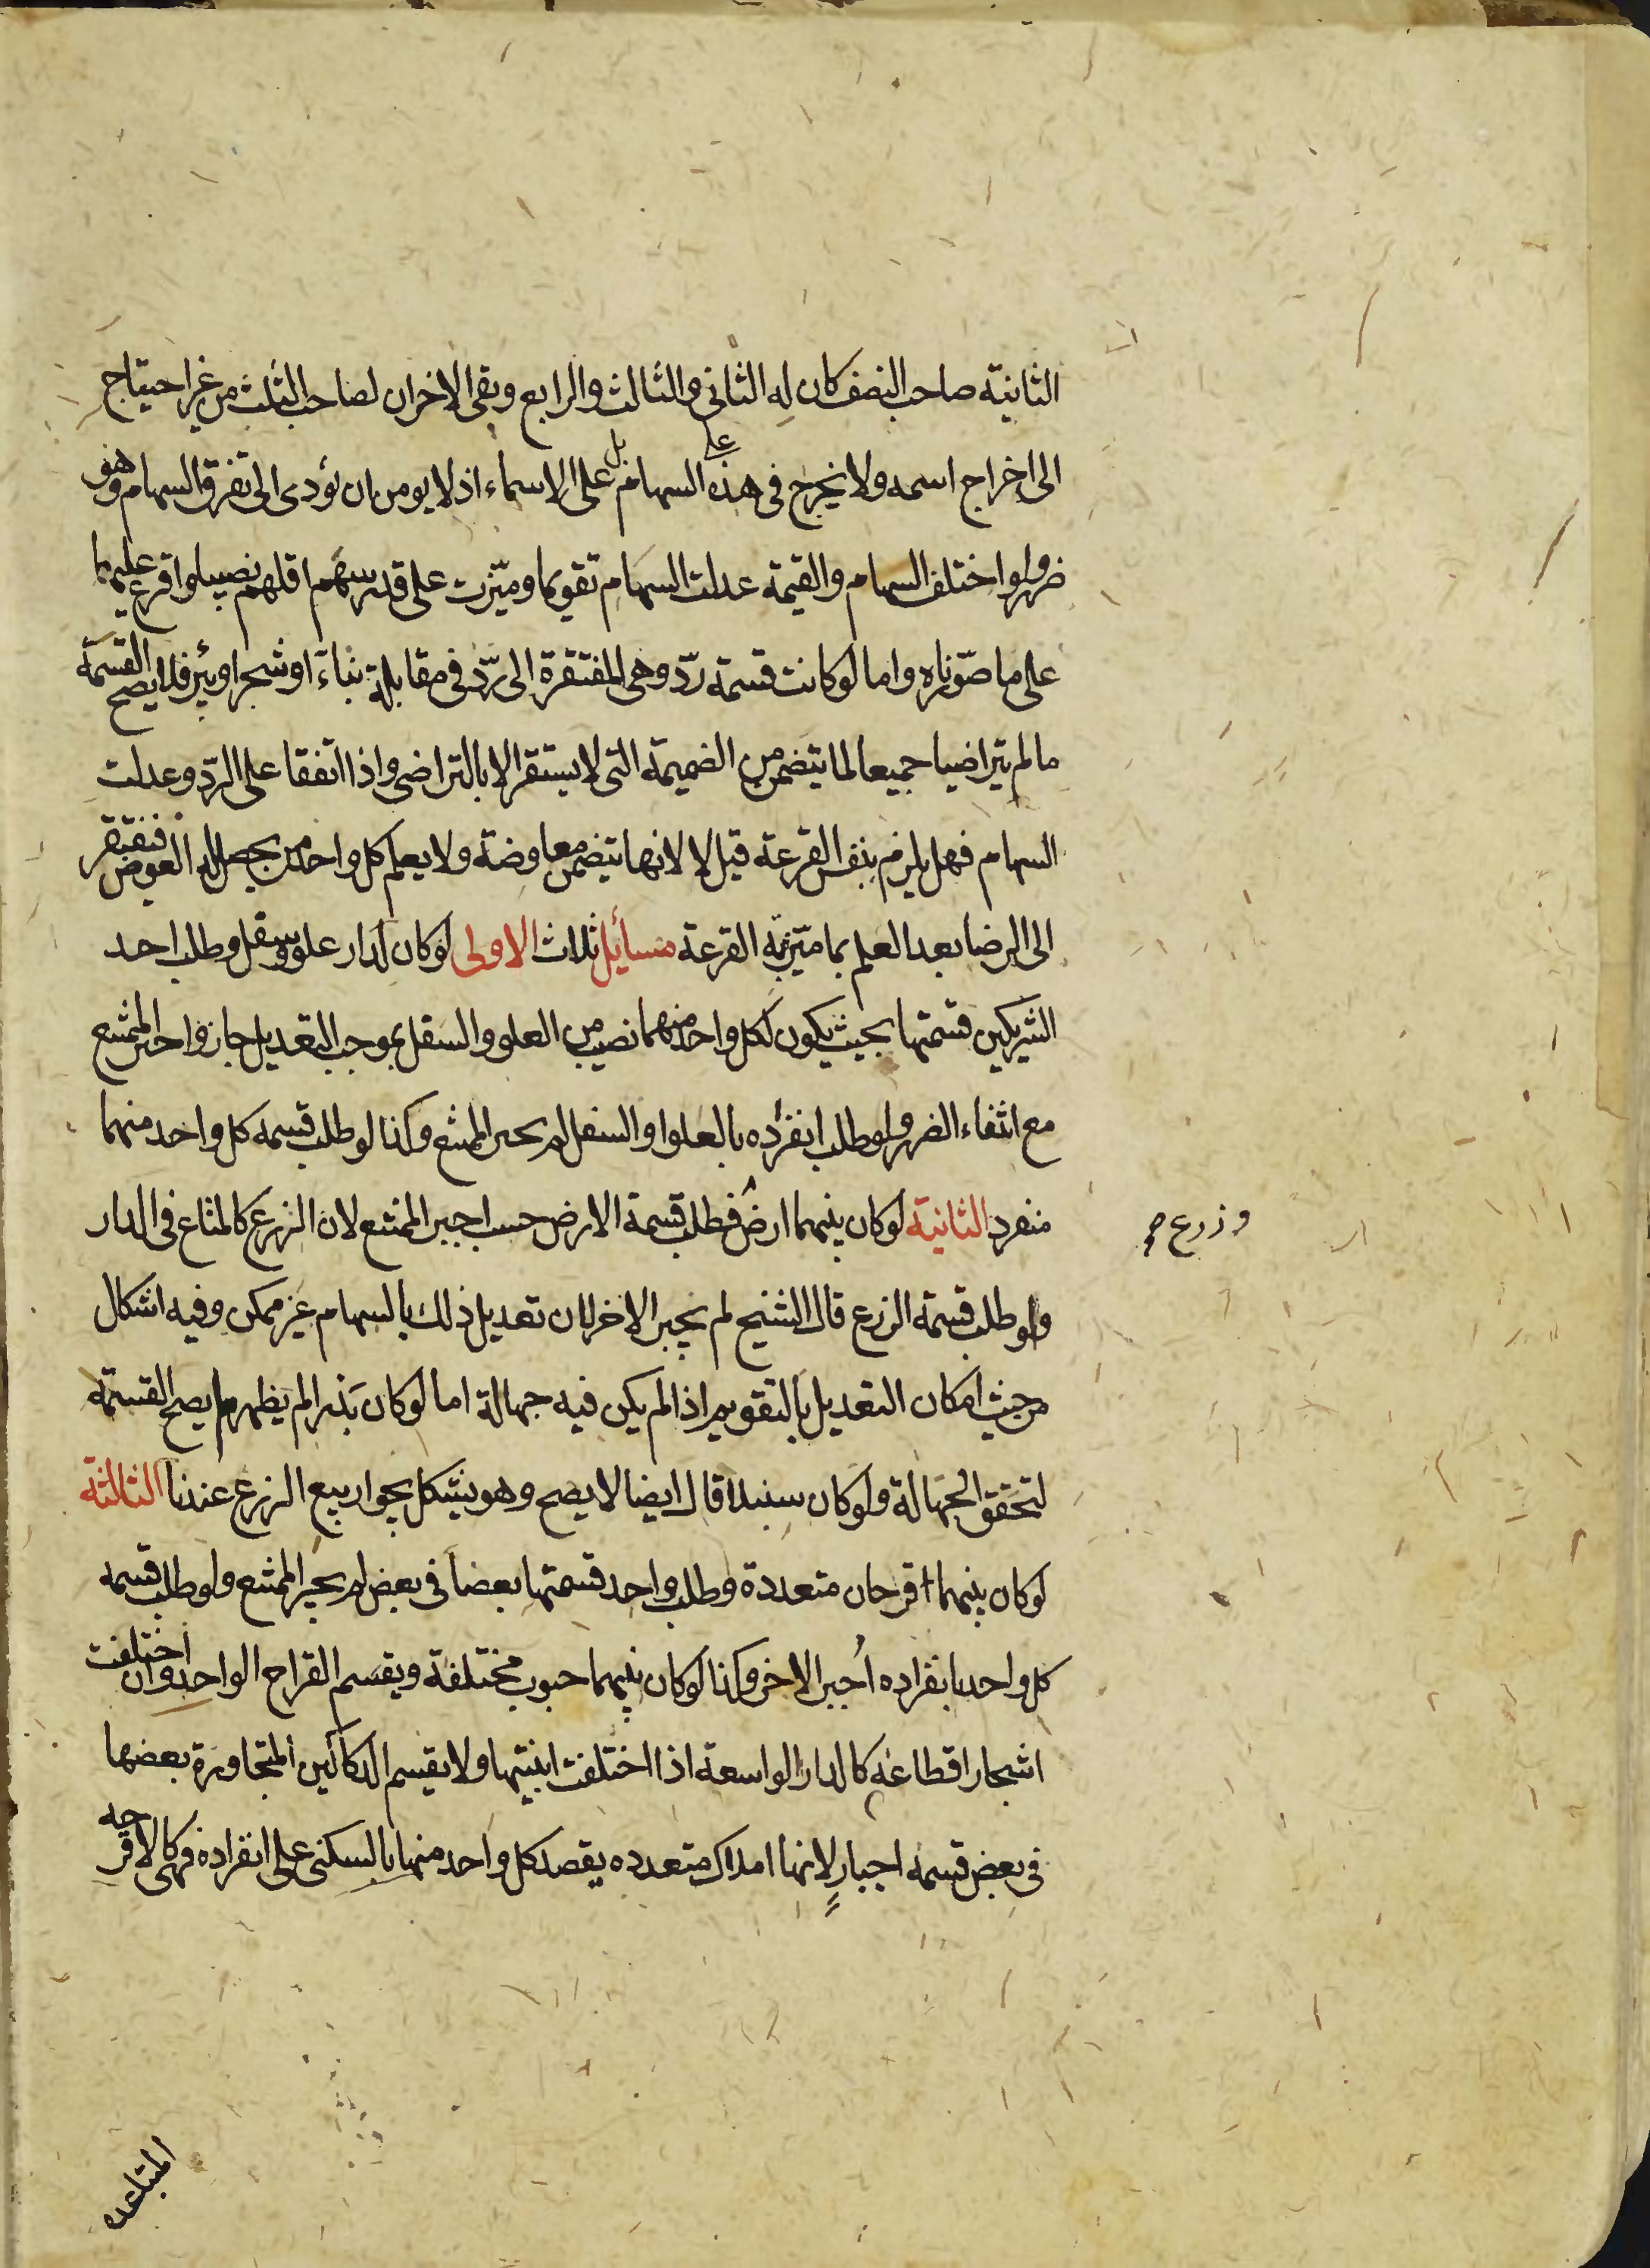 الثانية صاحب النصف كان له الثاني والثالث والرابع وبقى الاخران لصاحب الثلث من غير احتياج
الى اخراج اسمه ولا يخرج فى هذه على السهام بل على الاسماء اذ لا يومن ان يؤدى الى تفرق السهام وهو
ضرر ولو اختلف السهام والقيمة عدلت السهام تقويما وميّزت على قدر سهم اقلهم نصيبا واقرع عليهما
على ما صوّرناه واما لو كانت قسمة ردّ وهى المفتقرة الى ردّ فى مقابلة بناء او شجر او بئر فلا يصح القسمة
ما لم يتراضيا جميعا لما يتضمن من الضميمة التى لا يستقر الا بالتراضى واذا اتفقا على الردّ وعدلت
السهام فهل يلزم بنفس القرعة قيل لا لانها يتضمن معاوضة ولا يعلم كل واحد من يحصل له العوض فيفتقر
الى الرضا بعد العلم بما ميّزته القرعة مسائل ثلاث الاولى لو كان لدار علو وسفل وطلب احد
الشريكين قسمتها بحيث يكون لكل واحد منهما نصيب من العلو والسفل بموجب التعديل جاز واجبر الممتنع
مع انتفاء الضرر ولو طلب انفراده بالعلو او السفل لم يجبر الممتنع وكذا لو طلب قسمة كل واحد منهما
منفردا الثانية لو كان بينهما ارض فطلب قسمة الارض حسب اجبر الممتنع لان الزرع كالمتاع فى الدار
وزرع صح
ولو طلب قسمة الزرع قال الشيخ لم يجبر الاخر لان تعديل ذلك بالسهام غير ممكن وفيه اشكال
من حيث امكان التعديل بالتقويم اذا لم يكن فيه جهالة اما لو كان بذرا لم يظهر لم يصح القسمة
لتحقق الجهالة ولو كان سنبلا قال ايضا لا يصح وهو يشكل بجواز بيع الزرع عندنا الثالثة
لو كان بينهما اقرحان متعددة وطلب واحد قسمتها بعضا فى بعض لم يجبر الممتنع ولو طلب قسمة
كل واحد بانفراده اُجبر الاخر وكذا لو كان بينهما حبوب مختلفة ويقسم القراح الواحد وان اختلفت
اشجار اقطاعه كالدار الواسعة اذا اختلفت ابنيتها ولا يقسم الدكاكين المتجاورة بعضها
فى بعض قسمة اجبار لانها املاك متعدده يقصد كل واحد منها بالسكنى على انفراده فهى كالاقرحه
المتباعده